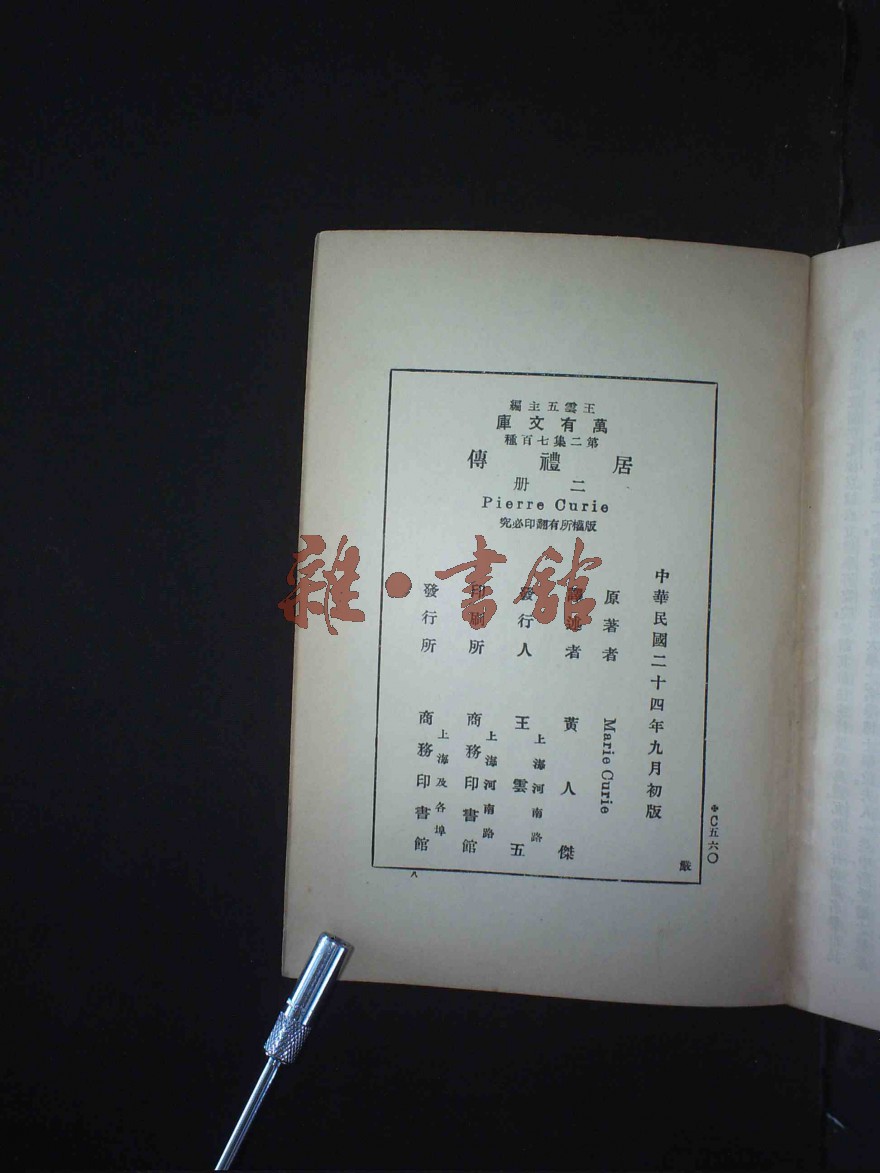 王雲五主編
萬有文庫
第二集七百種
居禮傳
二册
Pierre Curie
版權所有翻印必究
中華民國二十四年九月初版
原著者 Marie Curie
譯述者 黃人傑
發行人 王雲五
上海河南路
印刷所 商務印書館
上海河南路
發行所 商務印書館
上海及各埠
C五六〇
嚴
八
雜·書館